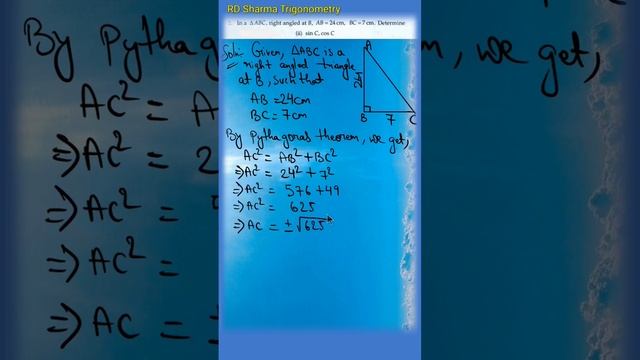 RD Sharma Trigonometry
In a △ABC, right angled at B, AB = 24 cm, BC = 7 cm. Determine
(ii) sin C, cos C
Soln- Given, △ABC is a
right angled triangle
at B, such that
AB = 24cm
BC = 7cm
A
24
B 7 C
By Pythagoras theorem, we get,
AC² = AB² + BC²
⇒ AC² = 24² + 7²
⇒ AC² = 576 + 49
⇒ AC² = 625
⇒ AC = ±√625
By Pythago
em, we get,
AC² = A
⇒ AC² = 2
⇒ AC² =
⇒ AC² =
⇒ AC =